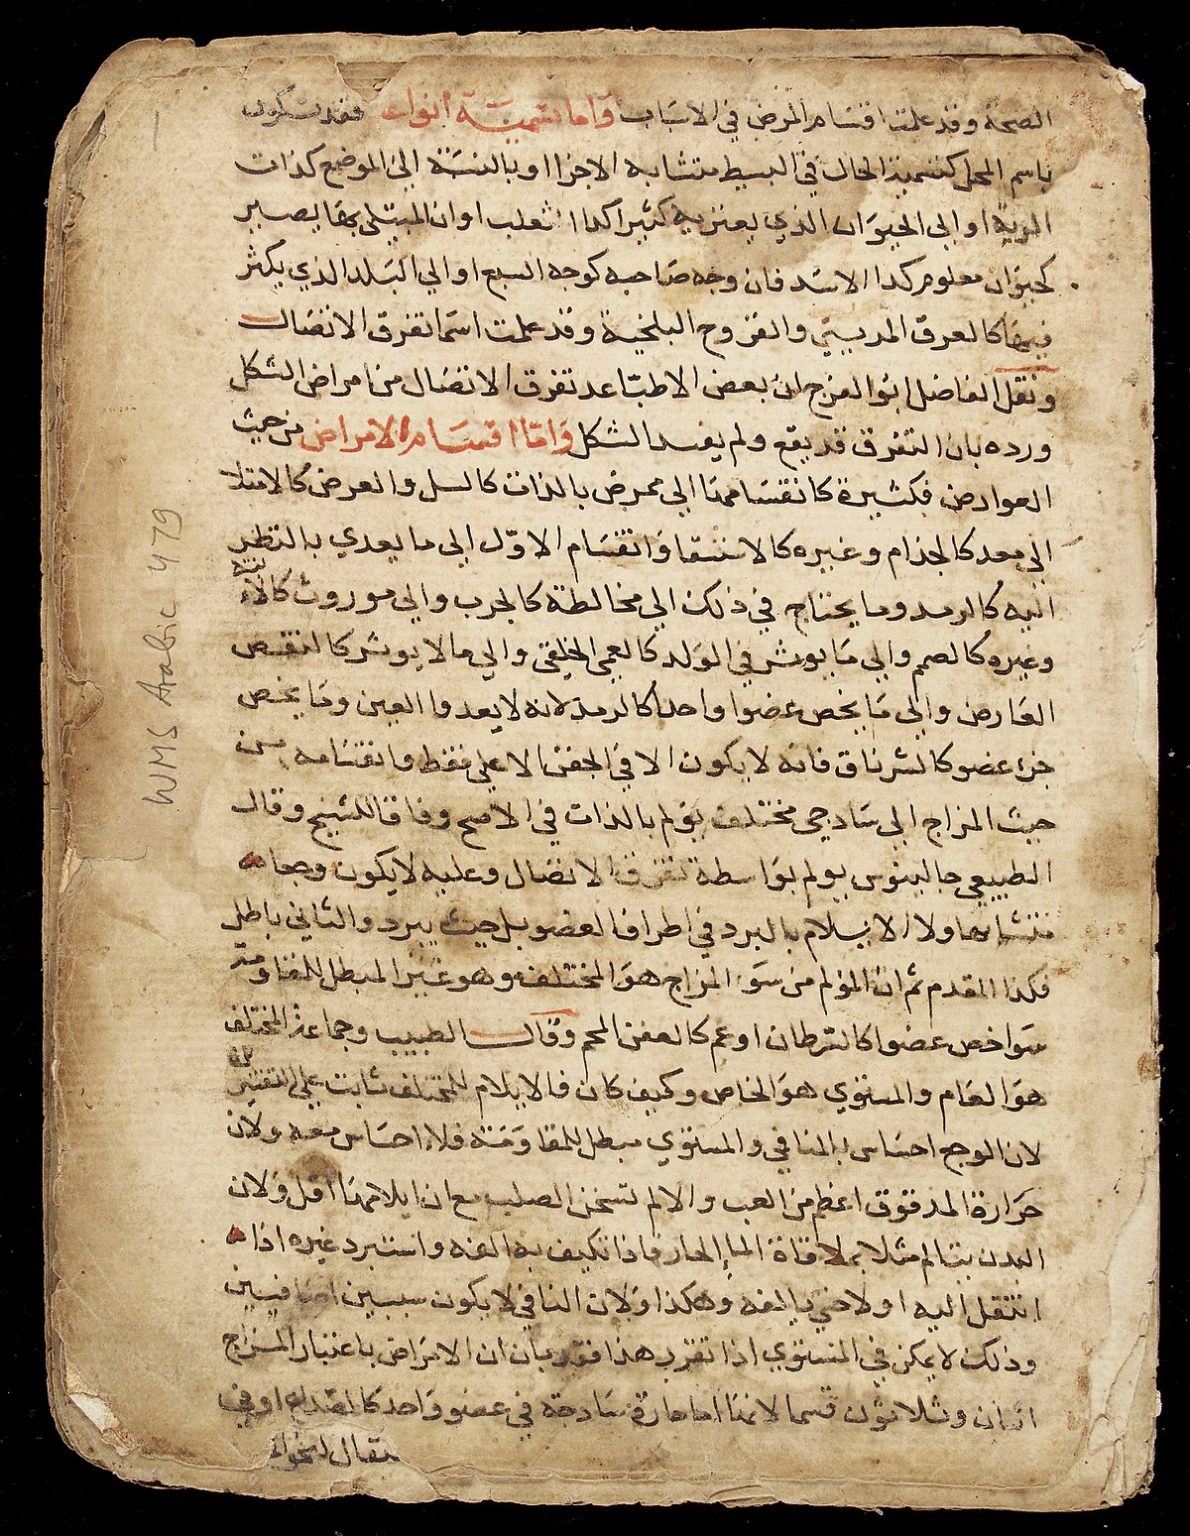 الصحة وقد علمت اقسام المرض في الاسباب واما تسمية انواعه فقد تكون
باسم المحل كتسمية الحال في البسيط متشابه الاجزا او بالنسبة الى الموضع كذات
الرية او الى الحيوان الذي يعتريه كثيرا كدا الثعلب او ان المبتلى بها يصير
كحيوان معلوم كدا الاسد فان وجه صاحبه كوجه السبع او الي البلد الذي يكثر
فيها كالعرق المديني والقروح البلخية وقد علمت اسما تفرق الاتصال
ونقل الفاضل ابو الفرج ان بعض الاطبا عد تفرق الاتصال من امراض الشكل
ورده بان التفرق قد يقع ولم يفسد الشكل واما اقسام الامراض من حيث
العوارض فكثيرة كانقسامها الي مرض بالذات كالسل والعرض كالامتلا
الي معد كالجذام وغيره كالاستسقا وانقسام الاول الي ما يعدي بالنظر
اليه كالرمد وما يحتاج في ذلك الي مخالطة كالجرب والي موروث كالابنة
وغيره كالصم والي ما يورث في الولد كالعمى الخلقي والي ما لا يوثر كالنقص
العارض والي ما يخص عضوا واحدا كالرمد لانه لا يعدوا العين وما يخص
جزء عضو كالشرناق فانه لا يكون الا في الجفن الاعلي فقط وانقسامه من
حيث المزاج الي ساذجي مختلف يولم بالذات في الاصح وفاقا للشيخ وقال
الطبيعي جالينوس يولم بواسطة تفرق الاتصال وعليه لا يكون وجعا
متشابها ولا الايلام بالبرد في اطراف العضو بل حيث يبرد والثاني باطل
فكذا المقدم ثم ان المولم من سو المزاج هو المختلف وهو غير المبطل للمقاومة
سوا خص عضوا كالسرطان او عم كالعفن الحم وقال الطبيب وجماعة المختلف
هو العام والمستوي هو الخاص وكيف كان فالايلام للمختلف ثابت علي التفسيرين
لان الوجع احساس بالمنافي والمستوي مبطل للمقاومة فلا احساس معه ولان
حرارة المدقوق اعظم من الغب والالم تسخن الصلب مع ان ايلامها اقل ولان
البدن يتالم مثلا بملاقاة الما الحار فاذا تكيف به الفه واستبرد غيره اذا
انتقل اليه اولا حتي يالفه وهكذا ولان النافي لا يكون سببين اضافيين
وذلك لا يمكن في المستوي اذا تقرر هذا فقد بان ان الامراض باعتبار المزاج
اثنان وثلاثون قسما لانها اما حارة ساذجة في عضو واحد كالصداع او في
WMS Arabic 479